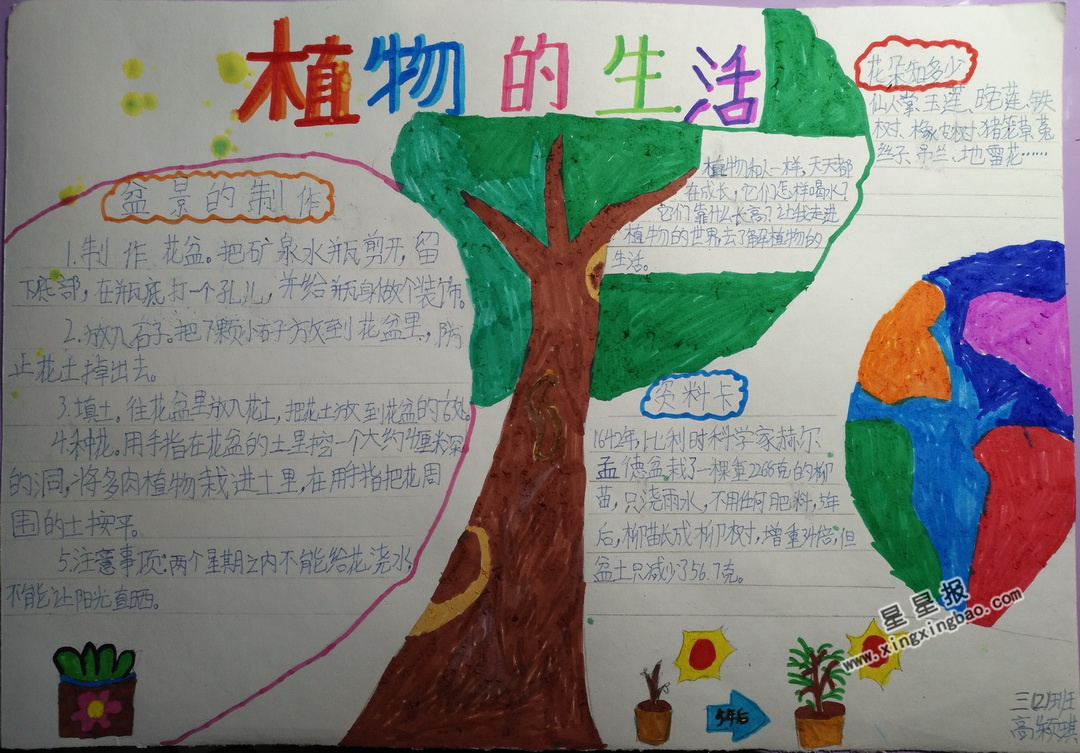 植物的生活
盆景的制作
1.制作花盆。把矿泉水瓶剪开,留
下底部,在瓶底打一个孔儿,并给瓶身做个装饰。
2.放入石子。把7颗小石子放到花盆里,防
止花土掉出去。
3.填土。往花盆里放入花土,把花土放到花盆的
4.种花。用手指在花盆的土里挖一个大约
的洞,将多肉植物栽进土里,在用手指把花周
围的土按平。
5.注意事项:两个星期之内不能给花浇水,
不能让阳光直晒。
植物和人一样,天天都
在成长,它们怎样喝水?
它们靠什么长高?让我走进
植物的世界去了解植物的
生活。
花朵知多少
仙人掌、玉莲、睡莲、铁
树、橡皮树、猪笼草、菟
丝子、吊兰、地雷花……
资料卡
1642年,比利时科学家赫尔
孟德盆栽了一棵重2266克的柳
苗,只浇雨水,不用任何肥料,5年
后,柳苗长成柳树,增重34倍,但
盆土只减少了56.7克。
5年后
星星报
www.xingxingbao.com
三(2)班
高颖琪